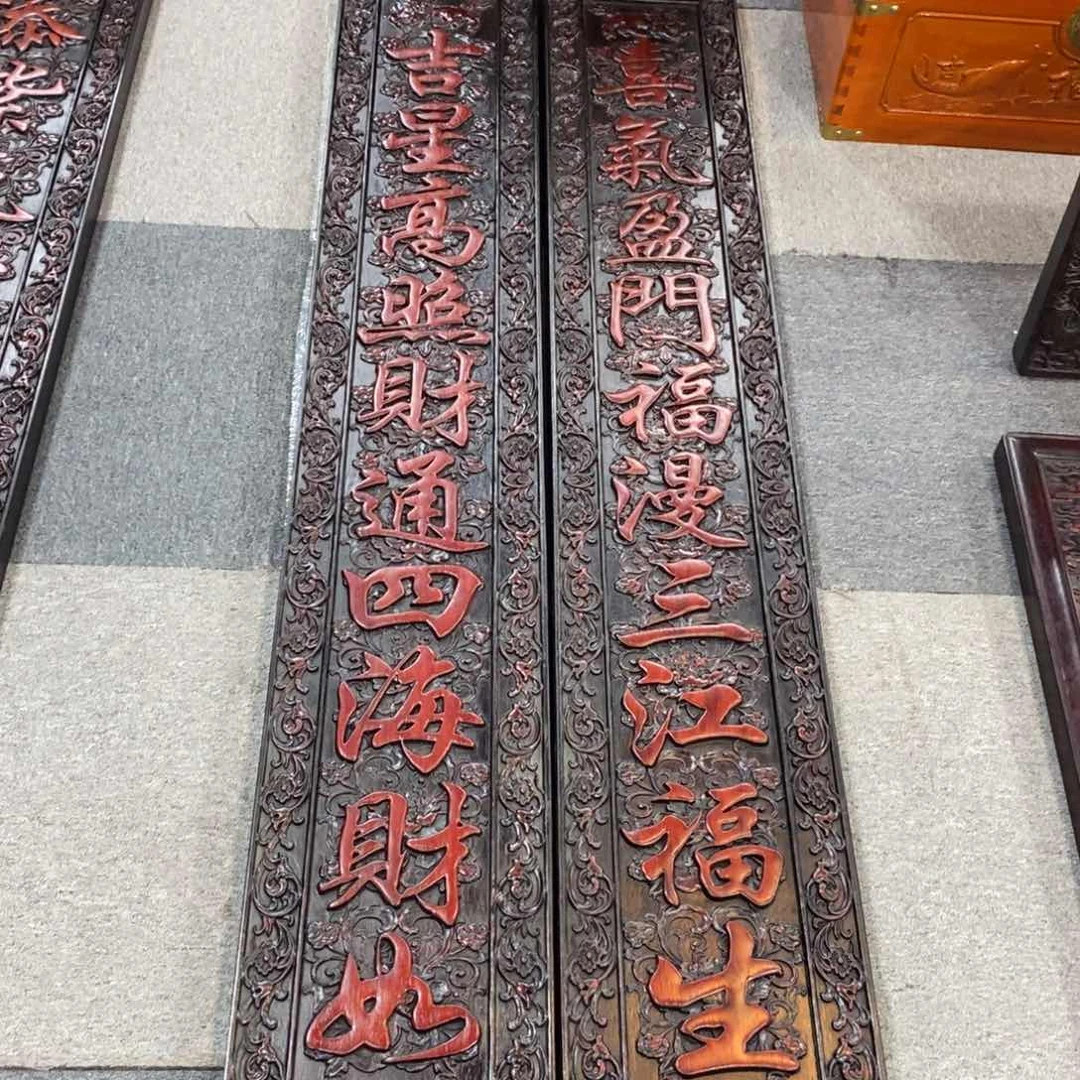 喜氣盈門福漫三江福生
吉星高照財通四海財如
恭